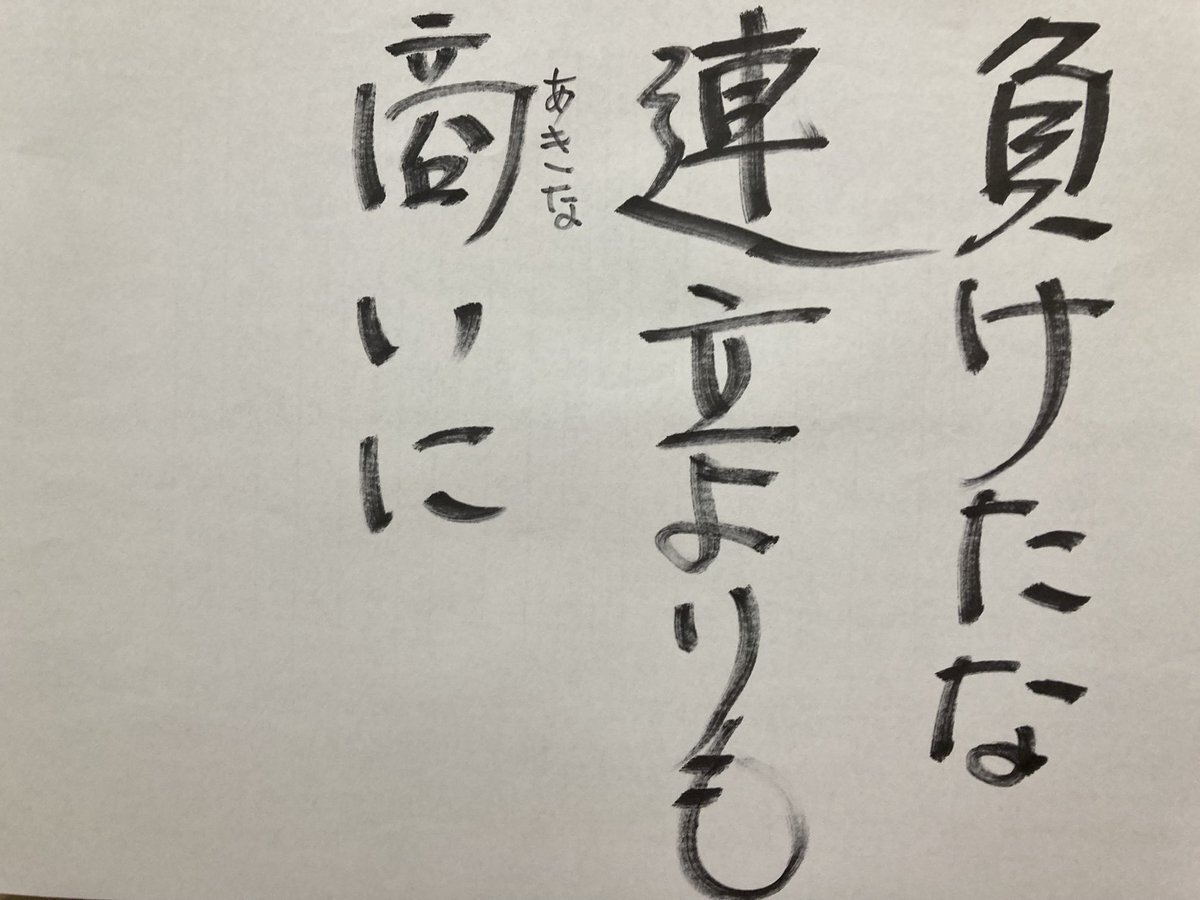 負けたな
連立よりも
あきな
商いに